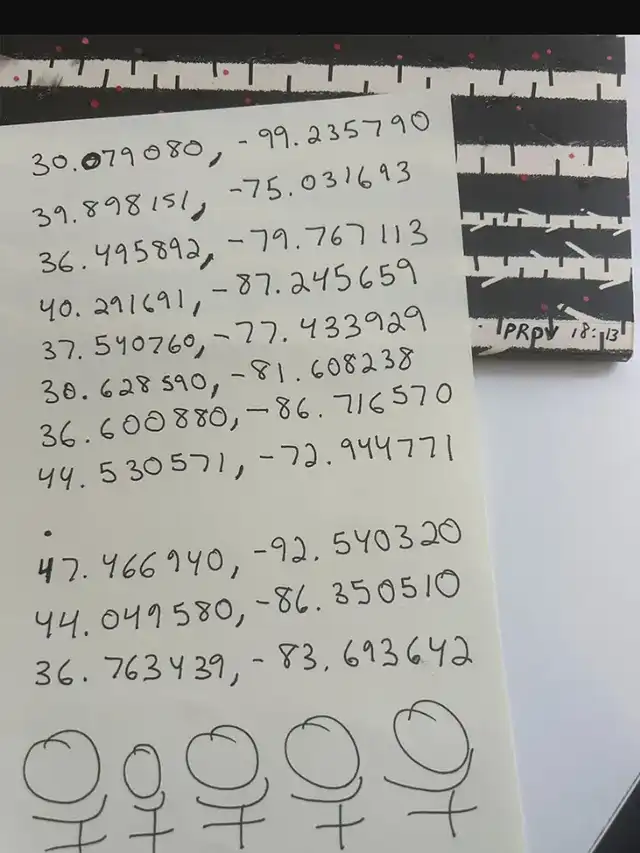 30.079080, -99.235790
39.898151, -75.031693
36.495892, -79.767113
40.291691, -87.245659
37.540760, -77.433929
30.628590, -81.608238
36.600880, -86.716570
44.530571, -72.944771
47.466940, -92.540320
44.049580, -86.350510
36.763439, -83.693642
PROV 18:13